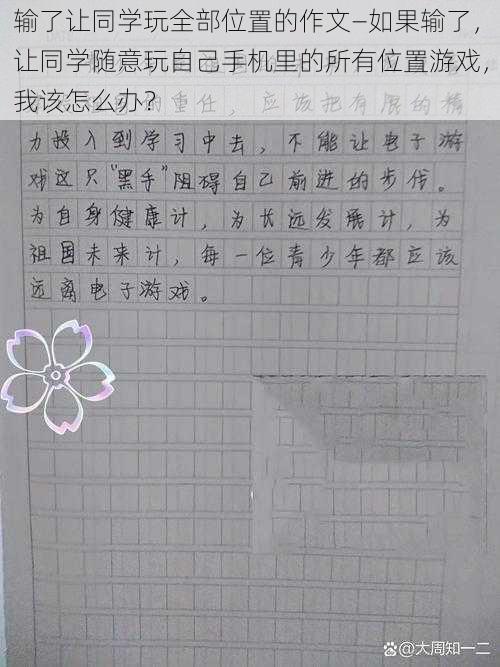 输了让同学玩全部位置的作文—如果输了，
让同学随意玩自己手机里的所有位置游戏，
我该怎么办？
的重任，应该把有限的精
力投入到学习中去，不能让电子游
戏这只“黑手”阻碍自己前进的步伐。
为自身健康计，为长远发展计，为
祖国未来计，每一位青少年都应该
远离电子游戏。
@大周知一二